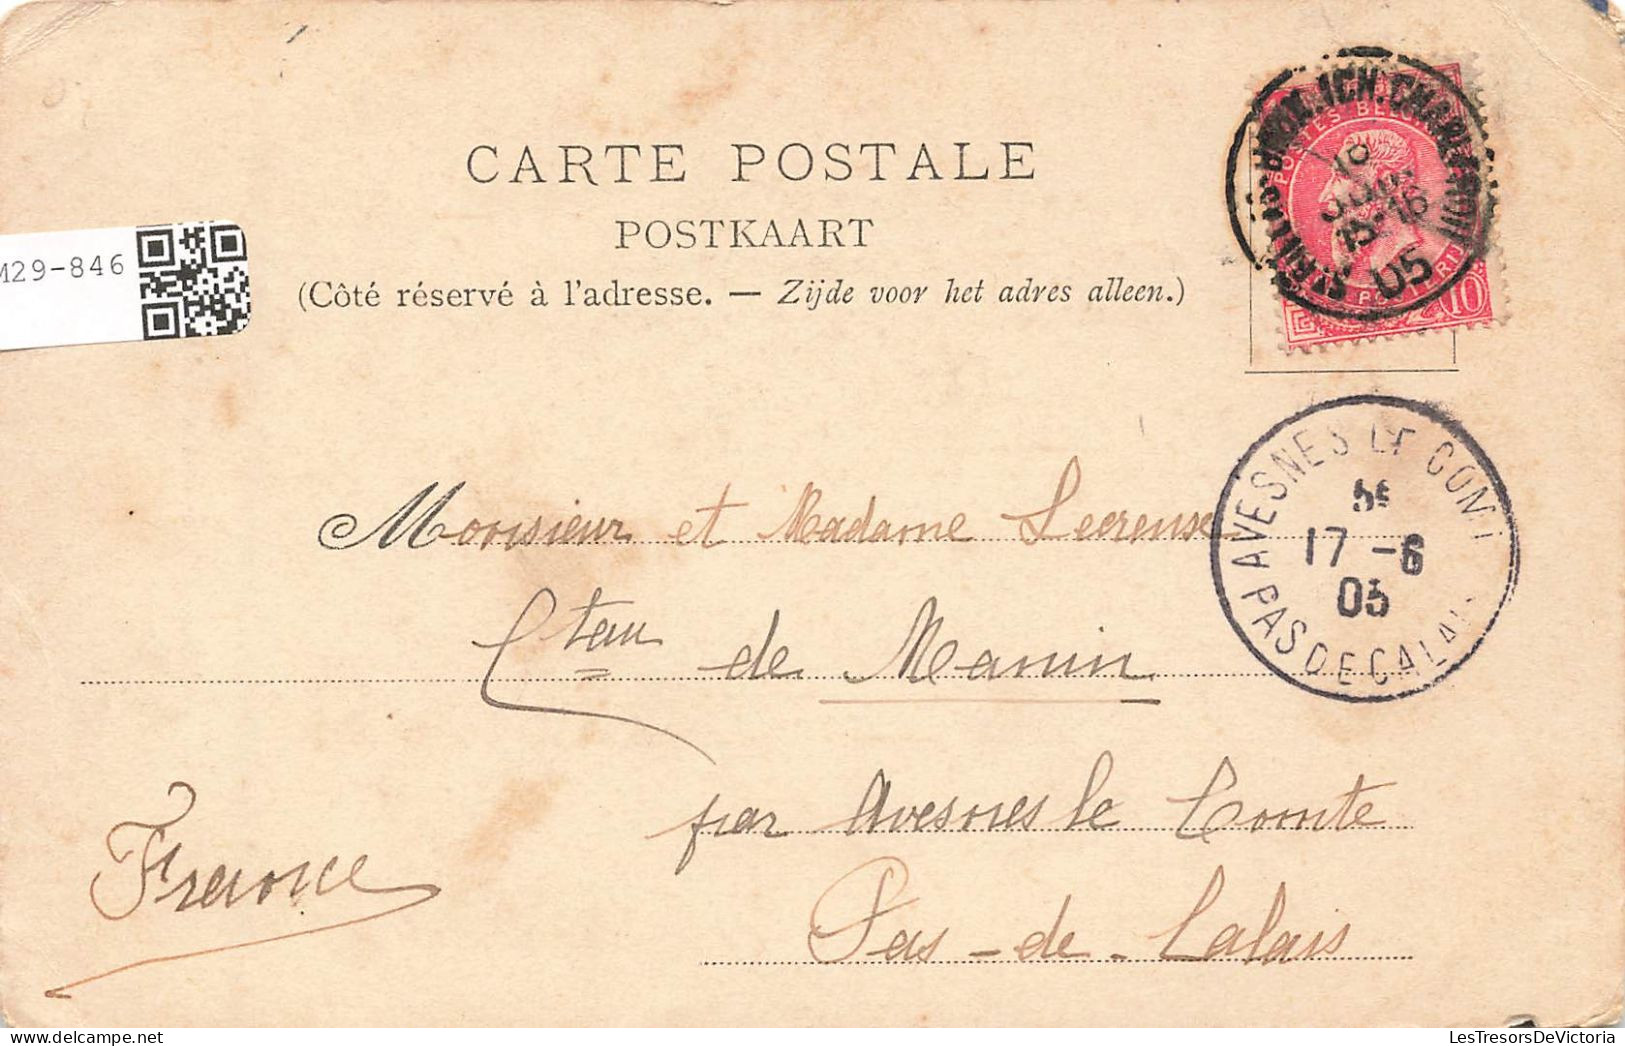 CARTE POSTALE
POSTKAART
(Côté réservé à l'adresse. — Zijde voor het adres alleen.)
M29-846
POSTES BELG
10
15-16
05
AVESNES LE COMT
17 -6
05
PAS DE CALAI
Monsieur et Madame
Cteau de Manin
par Avesnes le Comte
Pas-de-Calais
France
LesTresorsDeVictoria